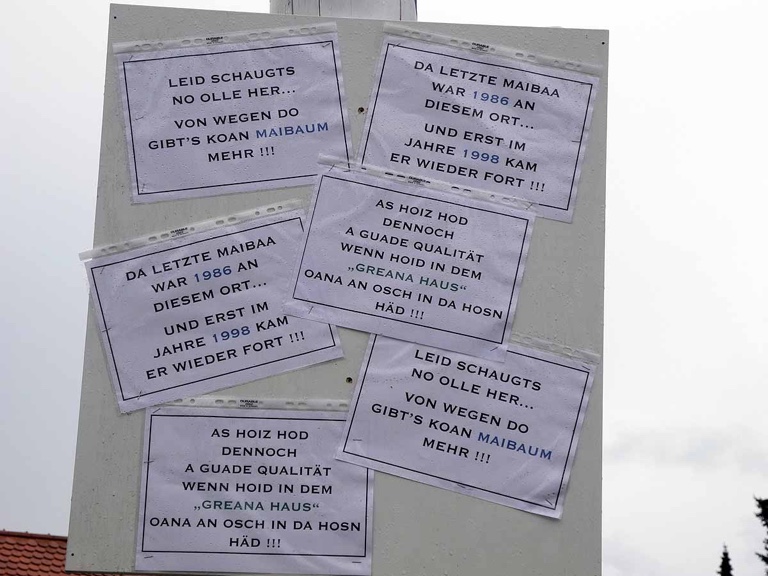 LEID SCHAUGTS
NO OLLE HER...
VON WEGEN DO
GIBT'S KOAN MAIBAUM
MEHR !!!
DA LETZTE MAIBAA
WAR 1986 AN
DIESEM ORT...
UND ERST IM
JAHRE 1998 KAM
ER WIEDER FORT !!!
AS HOIZ HOD
DENNOCH
A GUADE QUALITÄT
WENN HOID IN DEM
„GREANA HAUS“
OANA AN OSCH IN DA HOSN
HÄD !!!
DA LETZTE MAIBAA
WAR 1986 AN
DIESEM ORT...
UND ERST IM
JAHRE 1998 KAM
ER WIEDER FORT !!!
LEID SCHAUGTS
NO OLLE HER...
VON WEGEN DO
GIBT'S KOAN MAIBAUM
MEHR !!!
AS HOIZ HOD
DENNOCH
A GUADE QUALITÄT
WENN HOID IN DEM
„GREANA HAUS“
OANA AN OSCH IN DA HOSN
HÄD !!!